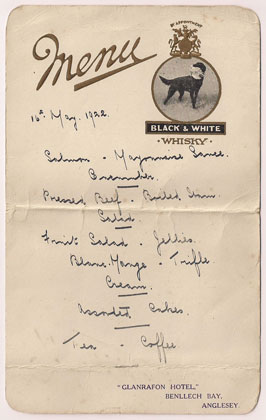 BY APPOINTMENT
Menu
BLACK & WHITE
WHISKY
May. 1922.
Salmon - Mayonnaise Sauce.
Cucumber.
Pressed Beef. Boiled Ham
Salad
Fruit Salad - Jellies.
Blanc-Mange - Trifle
Cream.
Assorted Cakes.
Tea - Coffee
"GLANRAFON HOTEL,"
BENLLECH BAY,
ANGLESEY.